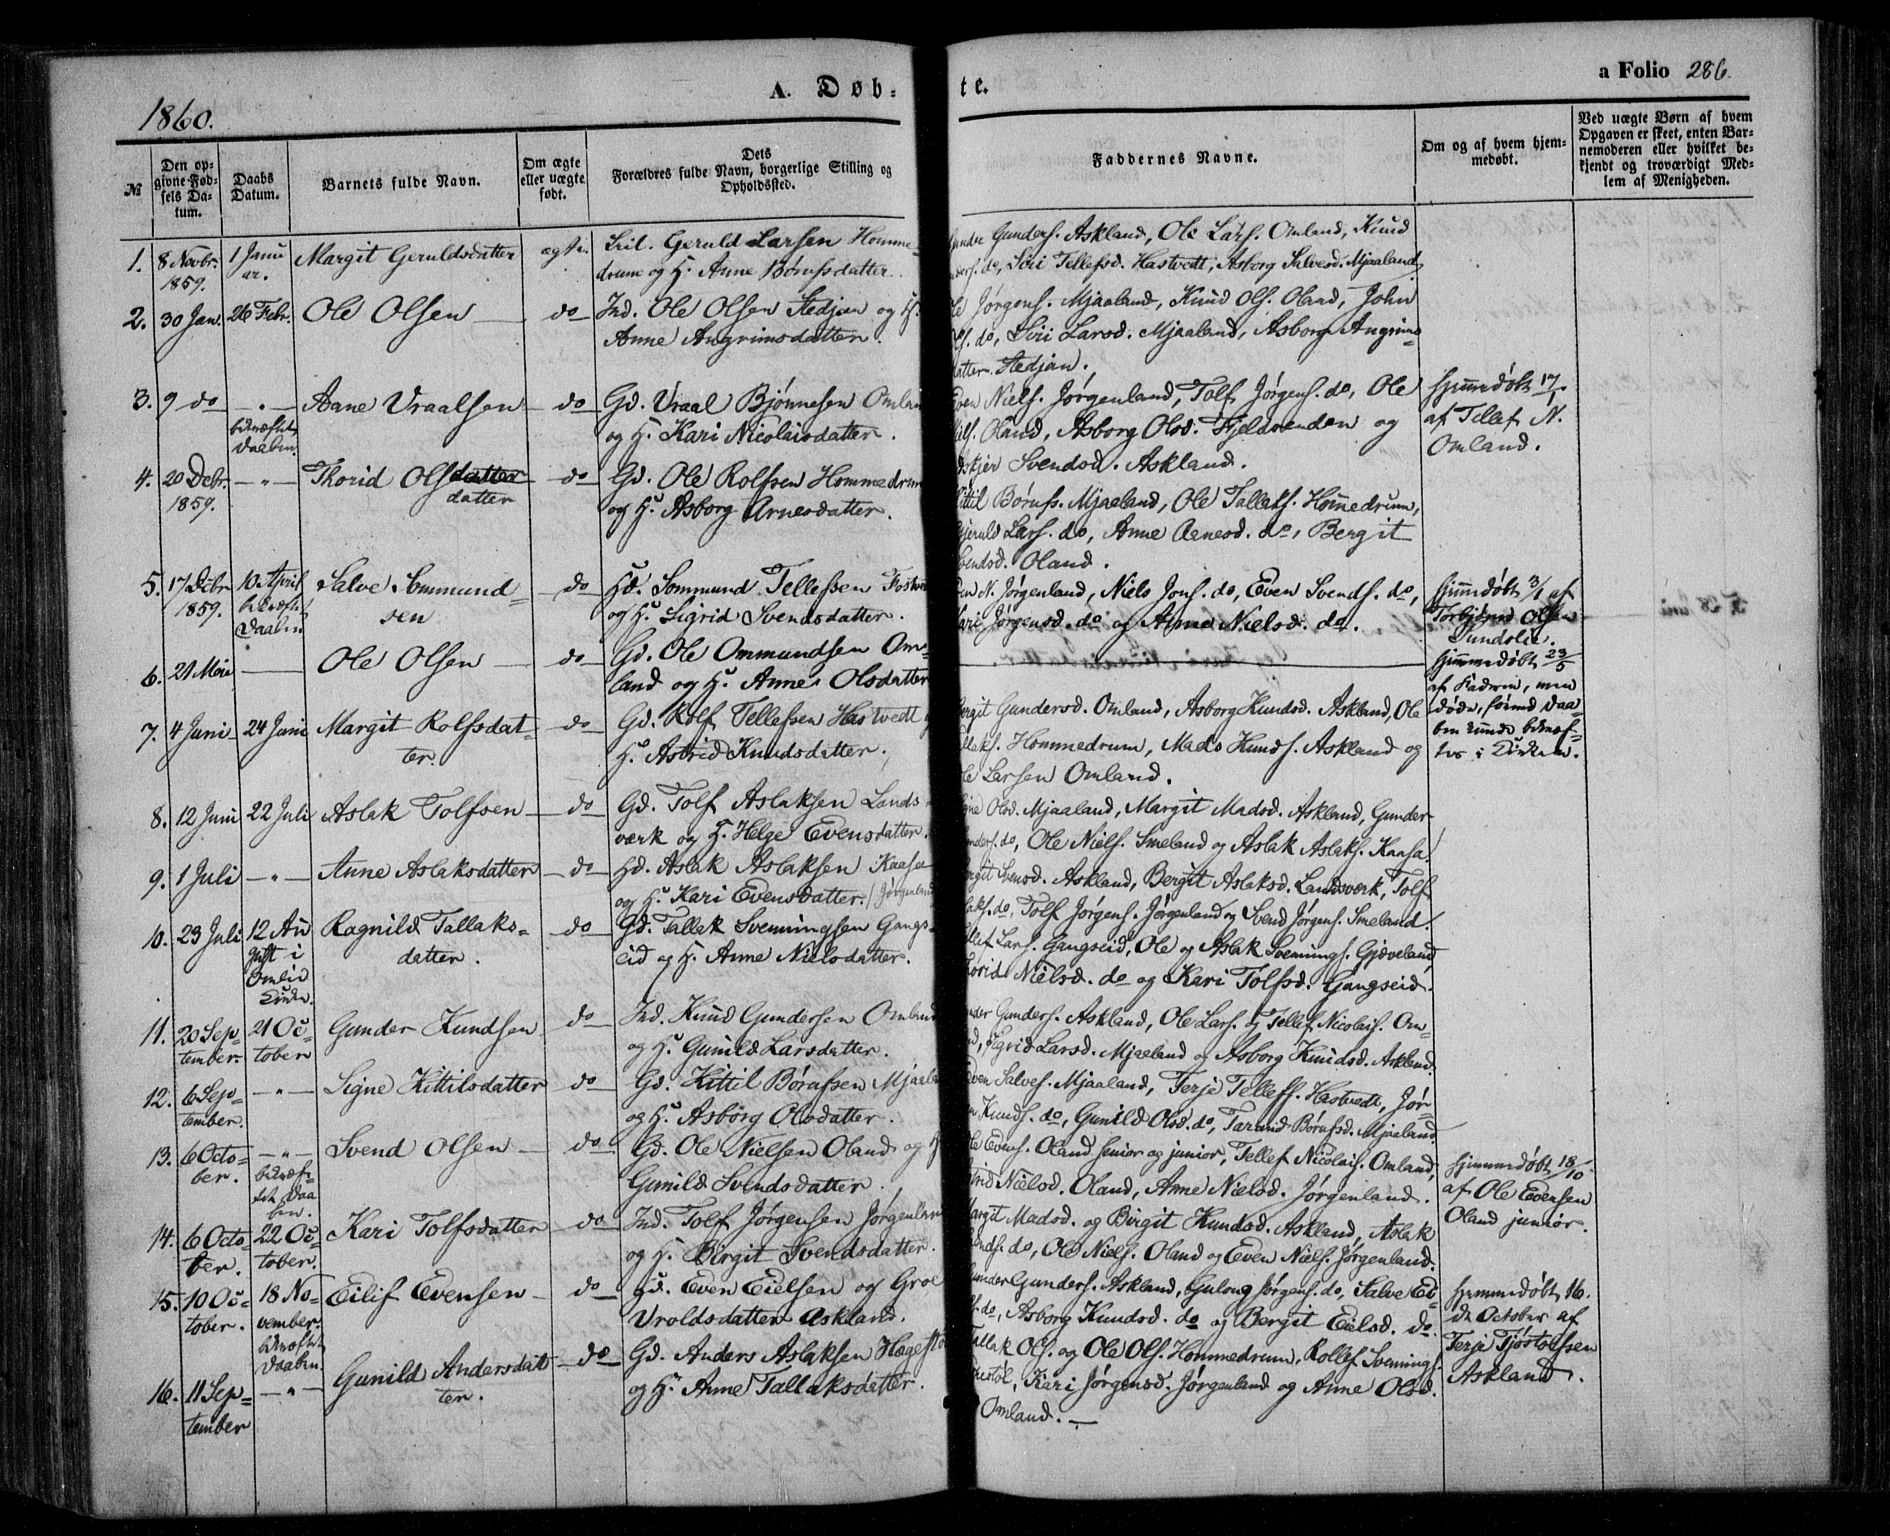 1860.
A. Døb-
te.
a Folio 286.
№
Den op-
givne Fød-
sels Da-
tum.
Daabs
Datum.
Barnets fulde Navn.
Om ægte
eller uægte
født.
Dets
Forældres fulde Navn, borgerlige Stilling og
Opholdssted.
Faddernes Navne.
Om og af hvem hjem-
medøbt.
Ved uægte Børn af hvem
Opgaven er skeet, enten Bar-
nemoderen eller hvilket be-
kjendt og troværdigt Med-
lem af Menigheden.
1. 8 Novbr. 1859. 1 Janu ar. Margit Geruldsdatter ægte.
Geruld Larsen Homme
drum og H. Anne Børufsdatter.
Gunders. Askland, Ole Lars. Omland, Knud
do, Siri Tellefsd. Hastvedt, Asborg Salvesd. Mjaaland
2. 30 Jan. 26 Febr. Ole Olsen do
Ind. Ole Olsen Stedjan og H.
Anne Angrimsdatter.
Jørgens. Mjaaland, Knud Ols. Oland, John
do, Siri Larsd. Mjaaland, Asborg Angrims
datter Stedjan.
3. 9 do -"- bekræftet Daaben. Aane Vraalsen do
Gd. Vraal Bjønnesen Omlan
og H. Kari Nicolaisdatter.
Even Niels. Jørgenland, Tolf Jørgens. do, Ole
Oland, Asborg Olsd. Fjeldvenden og
Svendsd. Askland.
Hjemmedøbt 17/1
af Tellef N.
Omland.
4. 20 Debr. 1859. -"- Thorid Olsdatter
datter do
Gd. Ole Rolfsen Hommedrum
og H. Asborg Arnesdatter.
Kittil Børufs. Mjaaland, Ole Tallaks. Hommedrum,
Gjeruld Lars. do, Anne Aenesd. do, Bergit
Svendsd. Oland.
5. 17 Debr 1859. 10 April bekræftet Daaben Salve Sommund-
sen do
Hd. Sommund Tellefsen Fostve
og H. Sigrid Svendsdatter.
Even N. Jørgenland, Niels Jons. do, Even Svends. do,
Kari Jørgensd. do og Anne Nielsd. do.
Hjemmedøbt 3/1 af
Torbjørnd Olsen
6. 21 Mai Ole Olsen do
Gd. Ole Ommundsen Om-
land og H. Anne Olsdatter
Hjemmedøbt 23/5
af Faderen, men
døde, førend Daa-
ben kunde bekræf-
tes i Kirken.
7. 4 Juni 24 Juni Margit Rolfsdat-
ter. do
Gd. Rolf Tellefsen Hastvedt
H. Astrid Knudsdatter.
Bergit Gundersd. Omland, Asborg Knudsd. Askland, Ole
Hommedrum, Mads Knuds. Askland og
Ole Larsen Omland.
8. 12 Juni 22 Juli Aslak Tolfsen do
Gd. Tolf Aslaksen Lands-
værk og H. Helge Evensdatter.
Olsd. Mjaaland, Margit Madsd. Askland, Gunder
do, Ole Niels. Smeland og Aslak Aslaks. Kaasa.
9. 1 Juli -"- Anne Aslaksdatter do
Hd. Aslak Aslaksen Kaasa
og H. Kari Evensdatter. / Jørgenland
Svensd. Askland, Bergit Aslaksd. Landsværk, Tolf
do, Tolf Jørgens. Jørgenland og Svend Jørgens. Smeland.
10. 23 Juli 12 Au gust i Omlid Kirke. Ragnild Tallaks-
datter. do
Gd. Tallek Svenningsen Gangs-
eid og H. Anne Nielsdatter.
Tellef Lars. Gangseid, Ole og Aslak Svennings. Gjæveland,
Thorid Nielsd. do og Kari Tolfsd. Gangseid.
11. 20 Sep- tember. 21 Oc- tober Gunder Knudsen do
Ind. Knud Gundersen Omland
og H. Gunild Larsdatter.
Gunder Gunders. Askland, Ole Lars. og Tellef Nicolais. Om-
Sigrid Larsd. Mjaaland og Asborg Knudsd. Askland.
12. 6 Sep- tember. -"- Signe Kittilsdatter do
Gd. Kittil Børufsen Mjaala
og H. Asborg Olsdatter.
Even Salves. Mjaaland, Terje Tellefs. Hastvedt, Jør-
Knuds. do, Gunild Olsd. do, Tarand Børufsd. Mjaaland.
13. 6 Octo- ber. -"- bekræf- tet Daa ben. Svend Olsen do
Gd. Ole Nielsen Oland og H
Gunild Svendsdatter.
Ole Evens. Oland senior og junior, Tellef Nicolais. Omland,
Nielsd. Oland, Anne Nielsd. Jørgenland.
Hjemmedøbt 18/10
af Ole Evensen
Oland junior.
14. 6 Octo- ber. 22 Oc- tober. Kari Tolfsdatter do
Ind. Tolf Jørgensen Jørgenlan
og H. Birgit Svendsdatter.
Margit Madsd. og Birgit Knudsd. Askland, Aslak
do, Ole Niels. Oland og Even Niels. Jørgenland.
15. 10 Oc- tober. 18 No- vember. bekræftet Daaben Eilif Evensen do
Hd. Even Eielsen og Groe
Vroldsdatter Askland.
Gunder Gunders. Askland, Gulong Jørgens. do, Salve Ei-
do, Asborg Knudsd. do og Bergit Eielsd. do.
Hjemmedøbt 16.
de October af
Terje Tjøstolfsen
Askland.
16. 11 Sep- tember -"- Gunild Andersdat
ter. do
Gd. Anders Aslaksen Hægestø
og H. Anne Tallaksdatter.
Tallak Ols. og Ole Ols. Hommedrum, Rollef Svennings.
Kari Jørgensd. Jørgenland og Anne Olsd.
Omland.